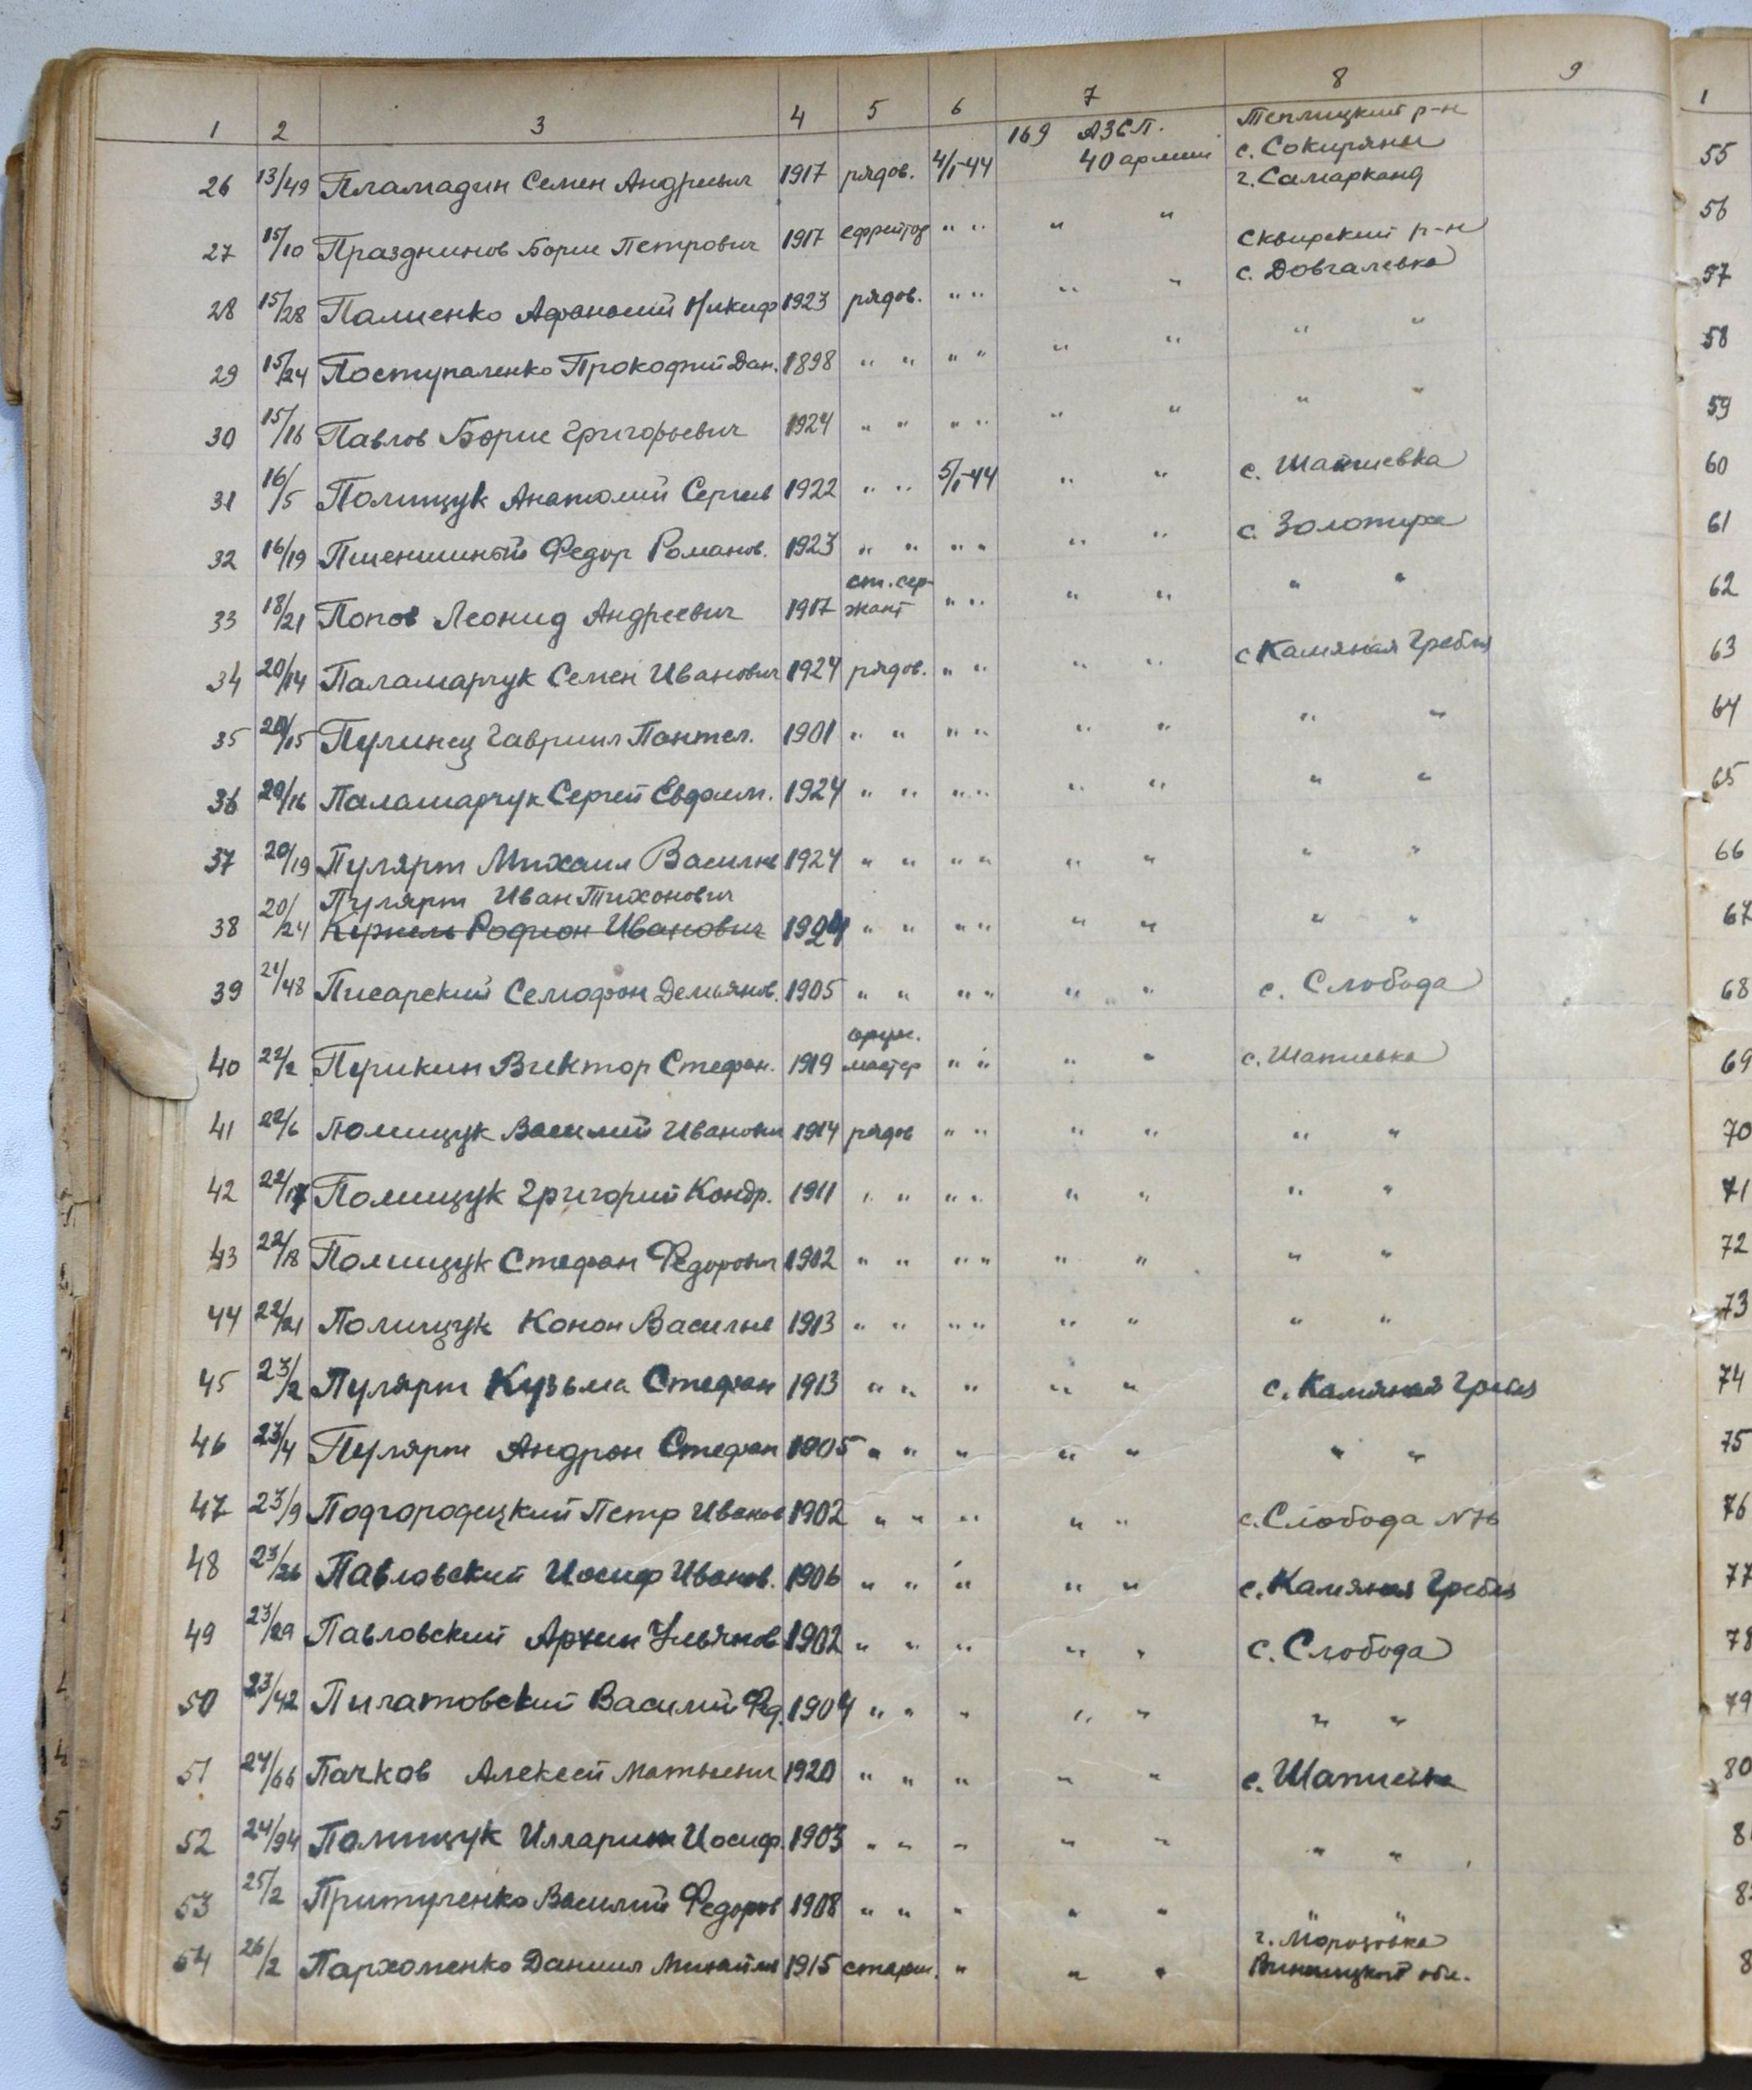 1 2 3 4 5 6 7 8 9
169 АЗСП. Теплицкий р-н
26 13/49 Пламадин Семен Андреевич 1917 рядов. 4/I-44 40 армии с. Сокиряны
г. Самарканд
27 15/10 Празднинов Борис Петрович 1917 ефрейтор " " " "
Сквирский р-н
с. Довгалевка
28 15/28 Палиенко Афанасий Никиф 1923 рядов. " " " "
29 15/24 Поступаленко Прокофий Дан. 1898 " " " " " " " "
30 15/16 Павлов Борис Григорьевич 1924 " " " " " " " "
31 16/5 Полищук Анатолий Сергеев 1922 " " 5/I-44 " " с. Шапиевка
32 16/19 Пшеничный Федор Романов. 1923 " " " " " " с. Золотуха
ст. сер-
33 18/21 Попов Леонид Андреевич 1917 жант " " " " " "
34 20/14 Паламарчук Семен Иванович 1924 рядов. " " " " с Камяная Гребля
35 20/15 Пулинец Гавриил Пантел. 1901 " " " " " " " "
36 20/16 Паламарчук Сергей Евфим. 1924 " " " " " " " "
37 20/19 Пулярт Михаил Васильев 1924 " " " " " " " "
Пулярт Иван Тихонович
38 20/24 Родион Иванович 1924 " " " " " " " "
39 21/48 Писарский Семофон Демьянов. 1905 " " " " " " с. Слобода
оруж.
40 22/2 Пурикин Виктор Стефан. 1919 мастер " " " " с. Шапиевка
41 22/6 Полищук Василий Иванович 1914 рядов " " " " " "
42 22/17 Полищук Григорий Кондр. 1911 " " " " " " " "
43 22/18 Полищук Стефан Федорович 1902 " " " " " " " "
44 22/21 Полищук Конон Васильев 1913 " " " " " " " "
45 23/2 Пулярт Кузьма Стефан 1913 " " " " " с. Камяная Гребля
46 23/4 Пулярт Андрон Стефан 1905 " " " " " " "
47 23/9 Подгородецкий Петр Иванов 1902 " " " " " с. Слобода N76
48 23/26 Павловский Иосиф Иванов. 1906 " " " " " с. Камяная Гребля
49 23/29 Павловский Архип Ульянов 1902 " " " " " с. Слобода
50 23/42 Пилатовский Василий Фед. 1904 " " " " " " "
51 24/66 Пачков Алексей Матвеевич 1920 " " " " " с. Шапиевка
52 24/94 Полищук Илларион Иосиф. 1903 " " " " " " "
53 25/2 Притученко Василий Федоров 1908 " " " " " " "
г. Морозовка
54 26/2 Пархоменко Даниил Михайлов 1915 старш. " " " Винницкой обл.
1
55
56
57
58
59
60
61
62
63
64
65
66
67
68
69
70
71
72
73
74
75
76
77
78
79
80